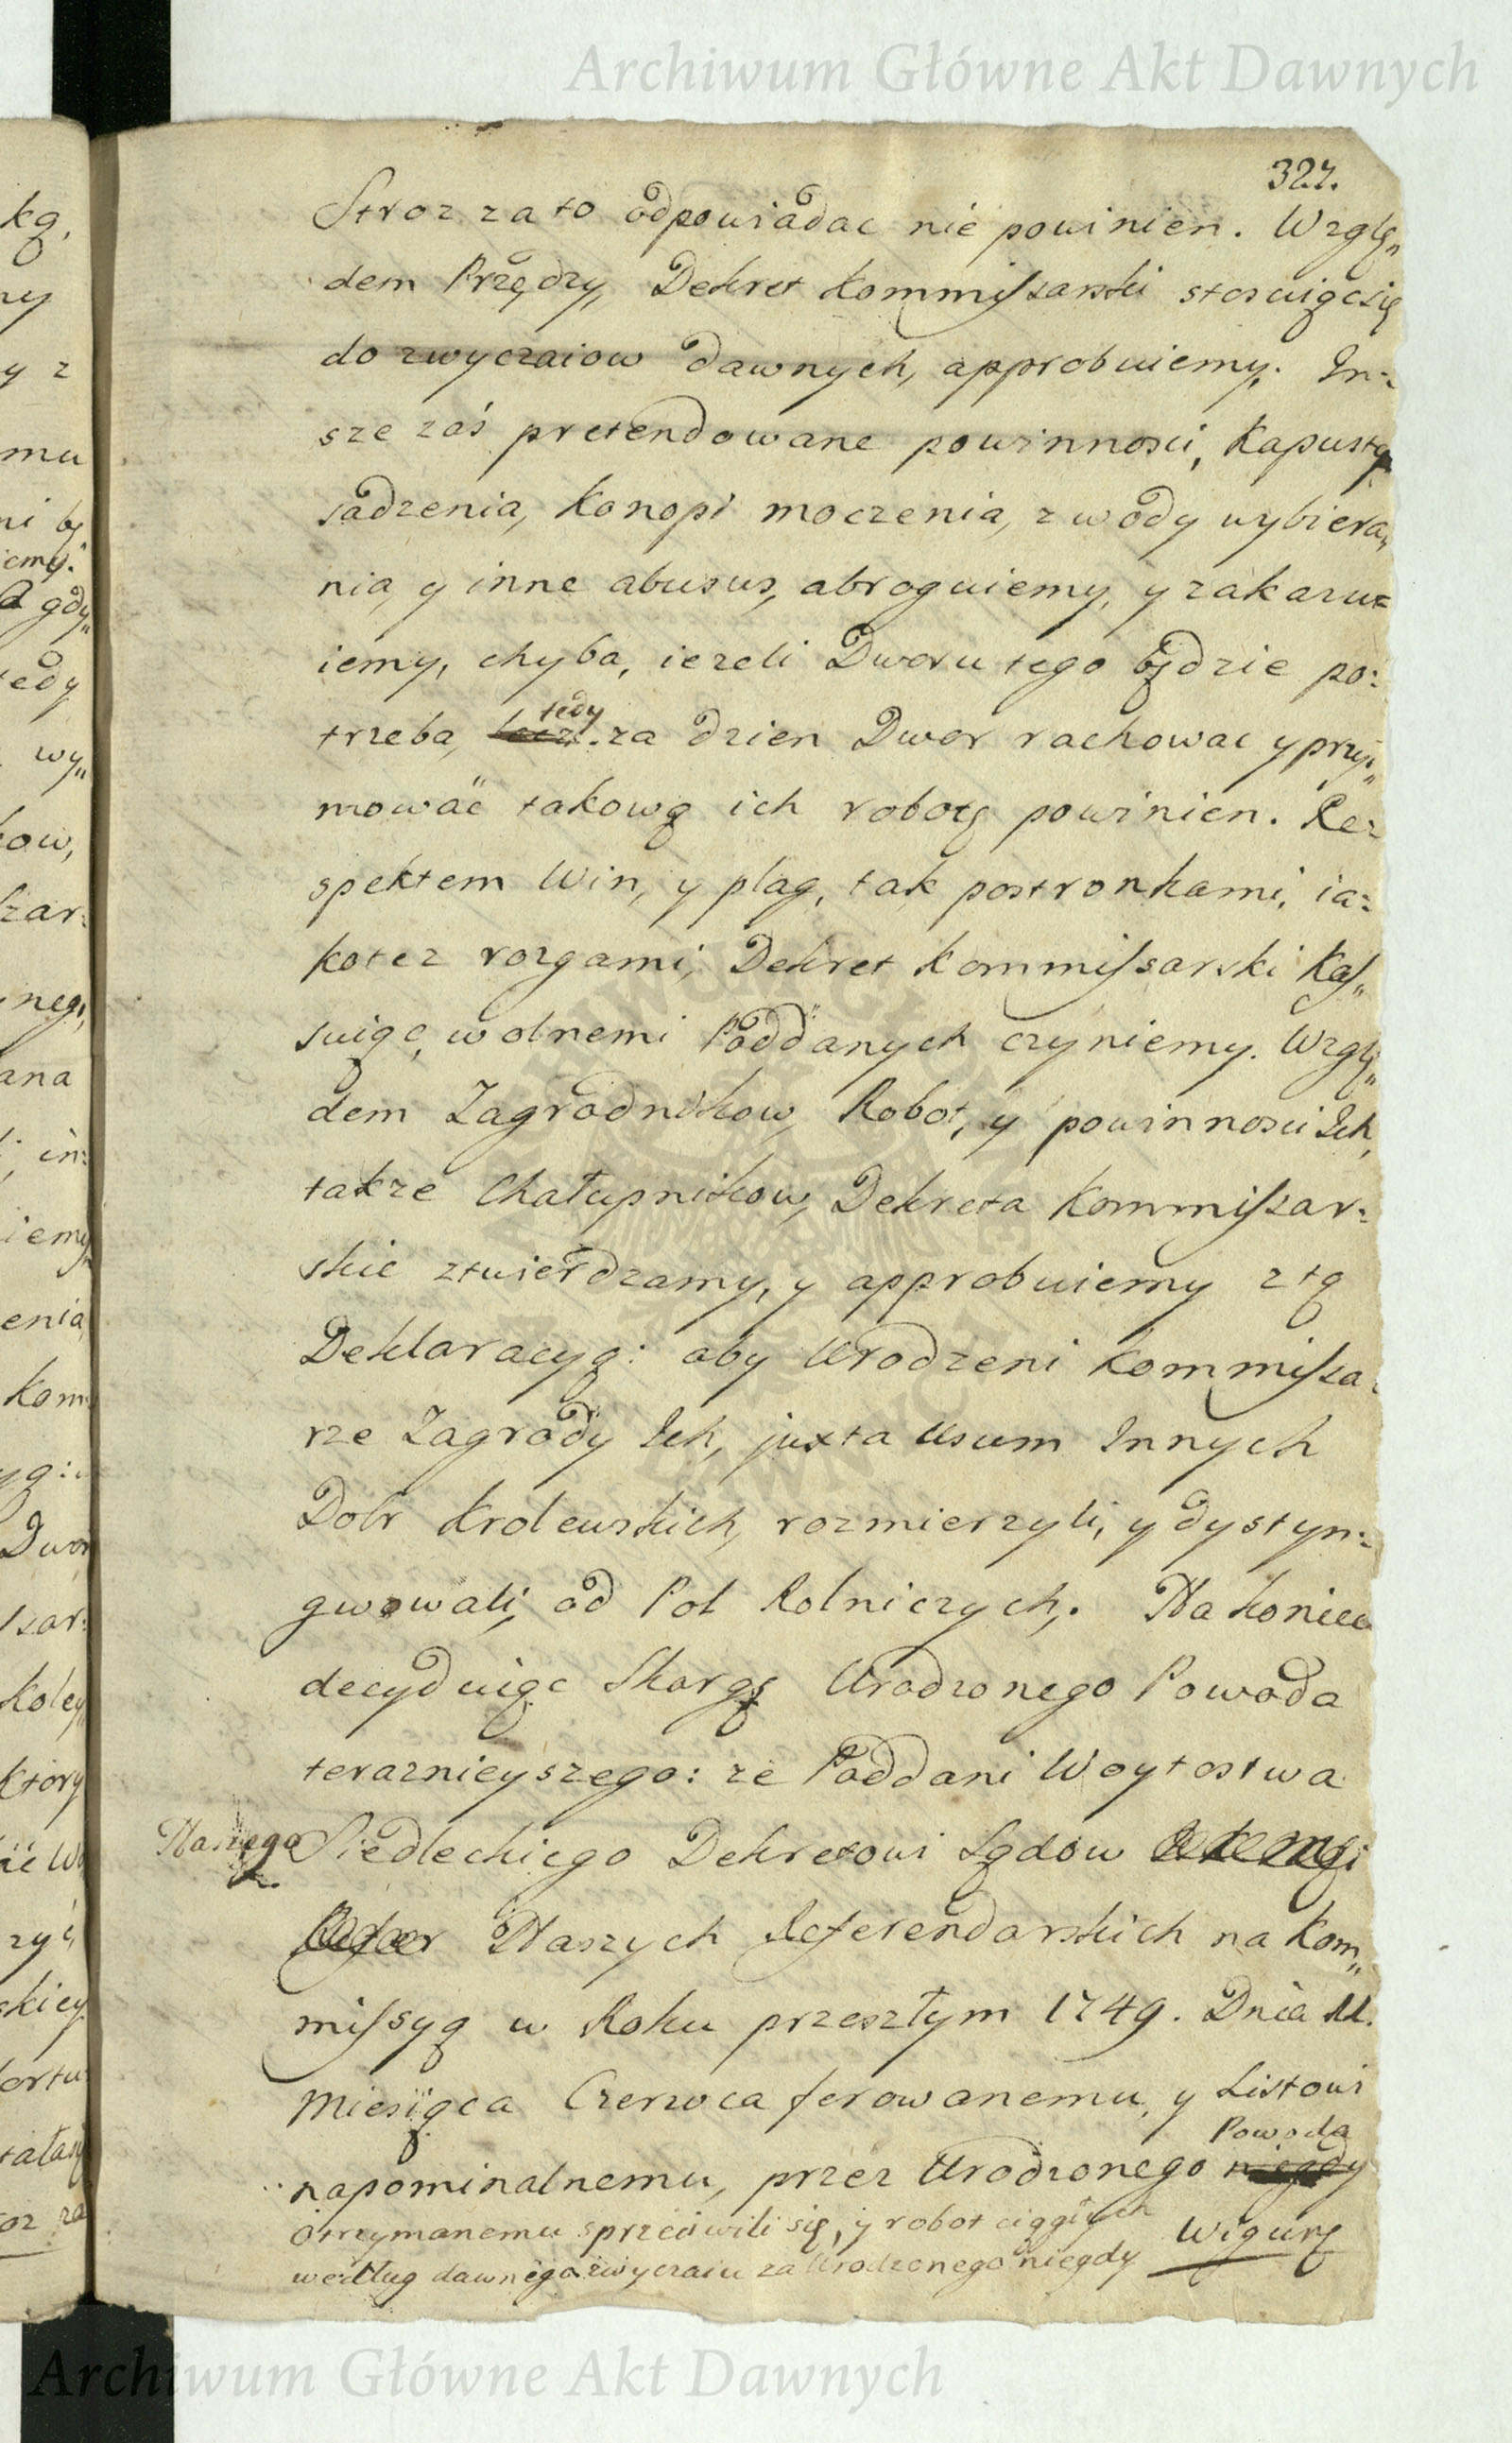 Archiwum Główne Akt Dawnych
327.
Stroz za to odpowiadac nie powinien. Wzglę„
dem Przędzy, Dekret Kommissarski stosuiąc się
do zwyczaiow dawnych, approbuiemy. In-
sze zaś pretendowane powinnosci, Kapusty
sadzenia, Konopi moczenia, z wody wybiera„
nia, y inne abusus, abroguiemy, y zakazu=
iemy, chyba, iezeli Dworu tego będzie po:
trzeba, tedy za dzien Dwor rachowac y przy„
mować takową ich robotę powinien. Re=
spektem Win, y plag, tak postronkami, ia:
kotez rozgami, Dekret Kommissarski Kas„
suiąc, wolnemi Poddanych czyniemy. Wzglę„
dem Zagrodnikow, Robot, y powinnosci Ich,
takze Chałupnikow, Dekreta Kommissar:
skie ztwierdzamy, y approbuiemy z tą
Deklaracyą: aby Urodzeni Kommissa:
rze Zagrody Ich, juxta Usum Innych
Dobr Krolewskich, rozmierzyli, y dystyn:
gwowali, od Pol Rolniczych. Na koniec
decyduiąc Skargę Urodzonego Powoda
teraznieyszego: ze Poddani Woytostwa
Naszego Siedleckiego Dekretowi Sądow
Naszych Referendarskich na Kom„
missyą w Roku przeszłym 1749. Dnia 11.
Miesiąca Czerwca ferowanemu, y Listowi
napominalnemu, przez Urodzonego Powoda
otrzymanemu sprzeciwili się, y robot ciągłych
według dawnego zwyczaiu za Urodzonego niegdy Wigurę
Archiwum Główne Akt Dawnych